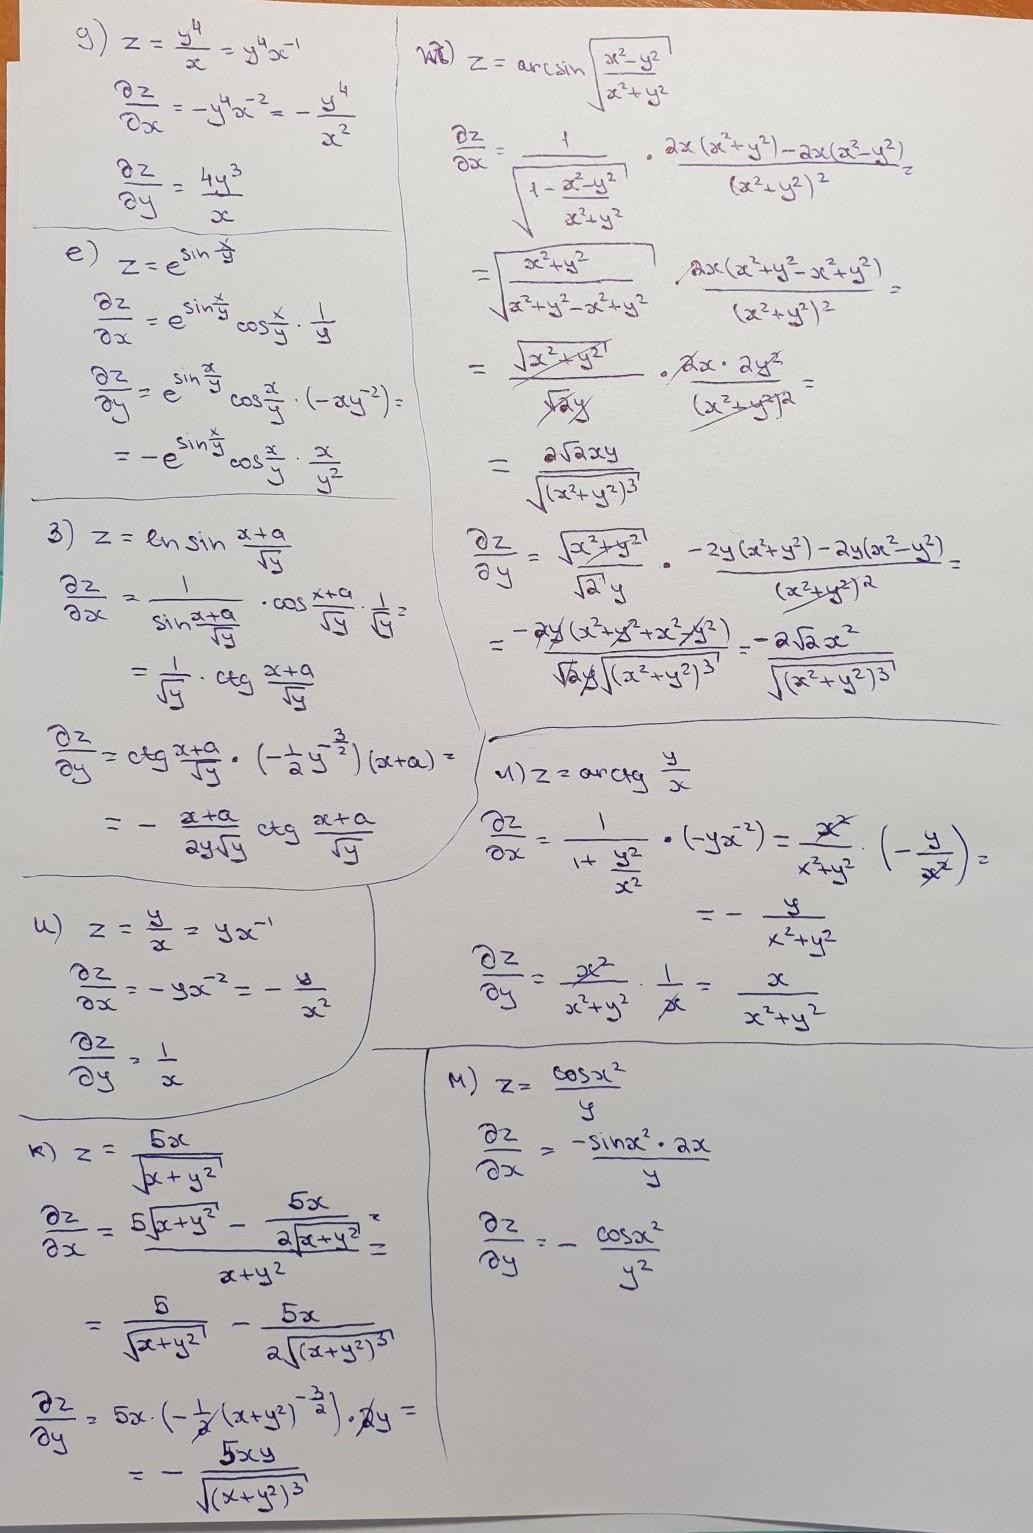 д) z = y⁴/x = y⁴x⁻¹
∂z/∂x = -y⁴x⁻² = - y⁴/x²
∂z/∂y = 4y³/x
е) z = e^(sin x/y)
∂z/∂x = e^(sin x/y) cos x/y · 1/y
∂z/∂y = e^(sin x/y) cos x/y · (-xy⁻²) =
= -e^(sin x/y) cos x/y · x/y²
з) z = ln sin (x+a)/√y
∂z/∂x = 1/(sin (x+a)/√y) · cos (x+a)/√y · 1/√y =
= 1/√y · ctg (x+a)/√y
∂z/∂y = ctg (x+a)/√y · (-1/2 y^(-3/2)) (x+a) =
= - (x+a)/(2y√y) ctg (x+a)/√y
и) z = y/x = yx⁻¹
∂z/∂x = -yx⁻² = - y/x²
∂z/∂y = 1/x
к) z = 5x/√(x+y²)
∂z/∂x = (5√(x+y²) - 5x/(2√(x+y²)))/(x+y²) =
= 5/√(x+y²) - 5x/(2√((x+y²)³))
∂z/∂y = 5x·(-1/2 (x+y²)^(-3/2))·2y =
= - 5xy/√((x+y²)³)
ж) z = arcsin √((x²-y²)/(x²+y²))
∂z/∂x = 1/√(1 - (x²-y²)/(x²+y²)) · (2x(x²+y²) - 2x(x²-y²))/(x²+y²)² =
= √((x²+y²)/(x²+y²-x²+y²)) · 2x(x²+y²-x²+y²)/(x²+y²)² =
= √(x²+y²)/(√2y) · (2x · 2y²)/(x²+y²)² =
= 2√2xy/√((x²+y²)³)
∂z/∂y = √(x²+y²)/(√2 y) · (-2y(x²+y²) - 2y(x²-y²))/(x²+y²)² =
= -2y(x²+y²+x²-y²)/(√2y√((x²+y²)³)) = -2√2x²/√((x²+y²)³)
л) z = arctg y/x
∂z/∂x = 1/(1+ y²/x²) · (-yx⁻²) = x²/(x²+y²) · (- y/x²) =
= - y/(x²+y²)
∂z/∂y = x²/(x²+y²) · 1/x = x/(x²+y²)
м) z = cosx²/y
∂z/∂x = (-sinx² · 2x)/y
∂z/∂y = - cosx²/y²